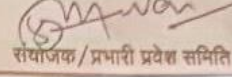 संयोजक/प्रभारी प्रवेश समिति